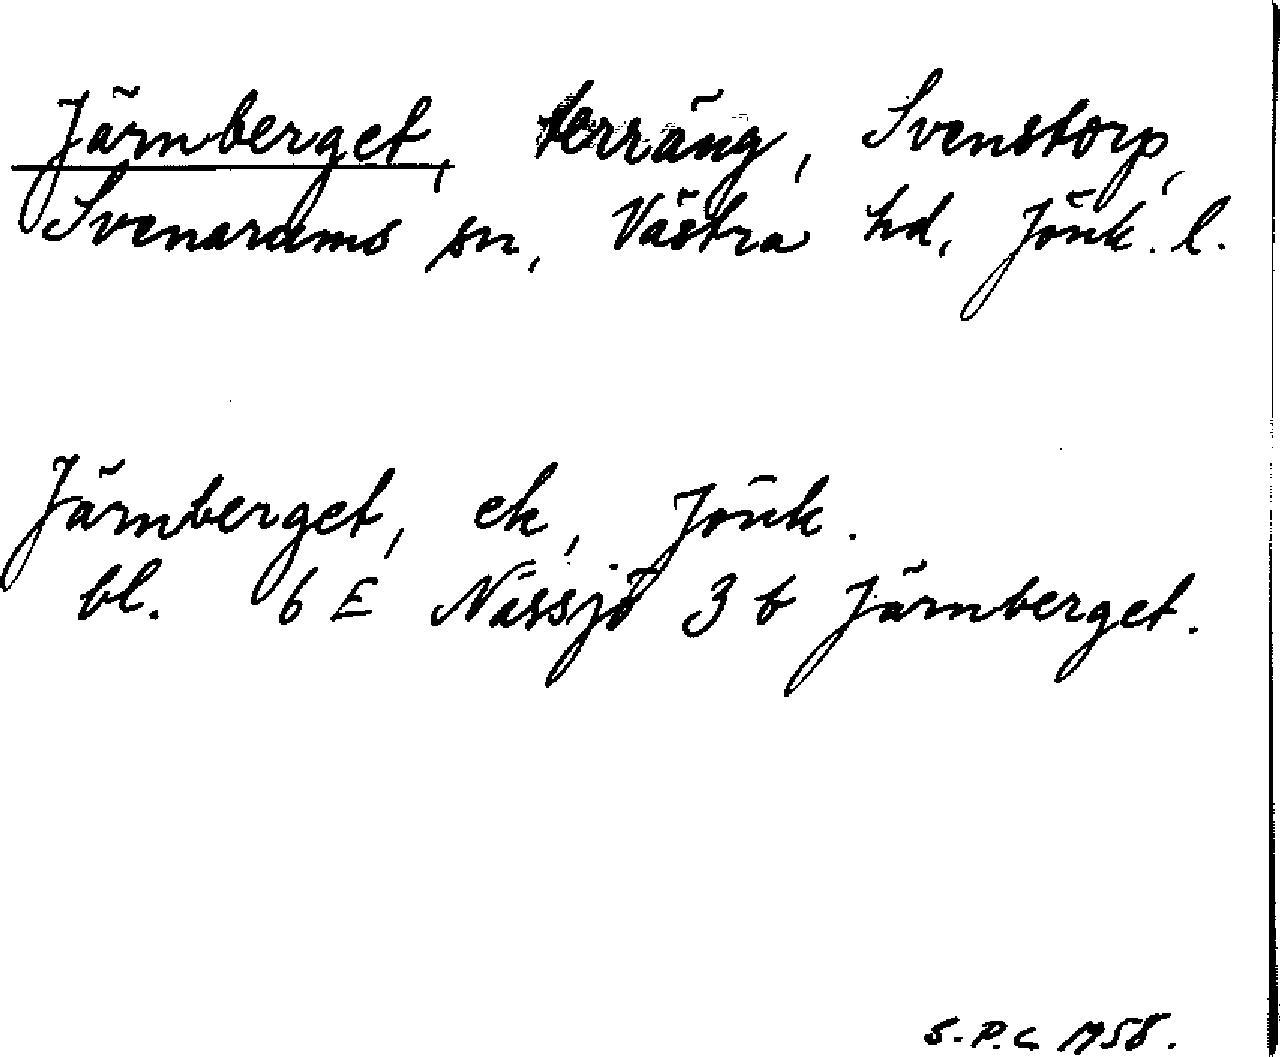 Järnberget, terräng, Svenstorp,
Svenarums sn, Västra hd, Jönk. l.
Järnberget, ek, Jönk.
bl. 6 E Nässjö 3 b Järnberget.
S.P.C. 1958.